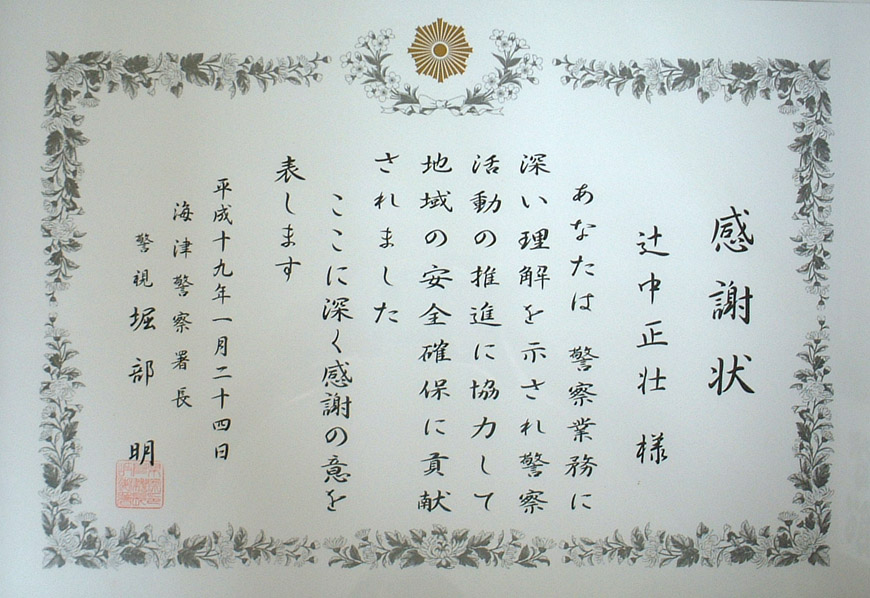 感謝状
辻中正壮 様
あなたは 警察業務に
深い理解を示され警察
活動の推進に協力して
地域の安全確保に貢献
されました
ここに深く感謝の意を
表します
平成十九年一月二十四日
海津警察署長
警視 堀部 明